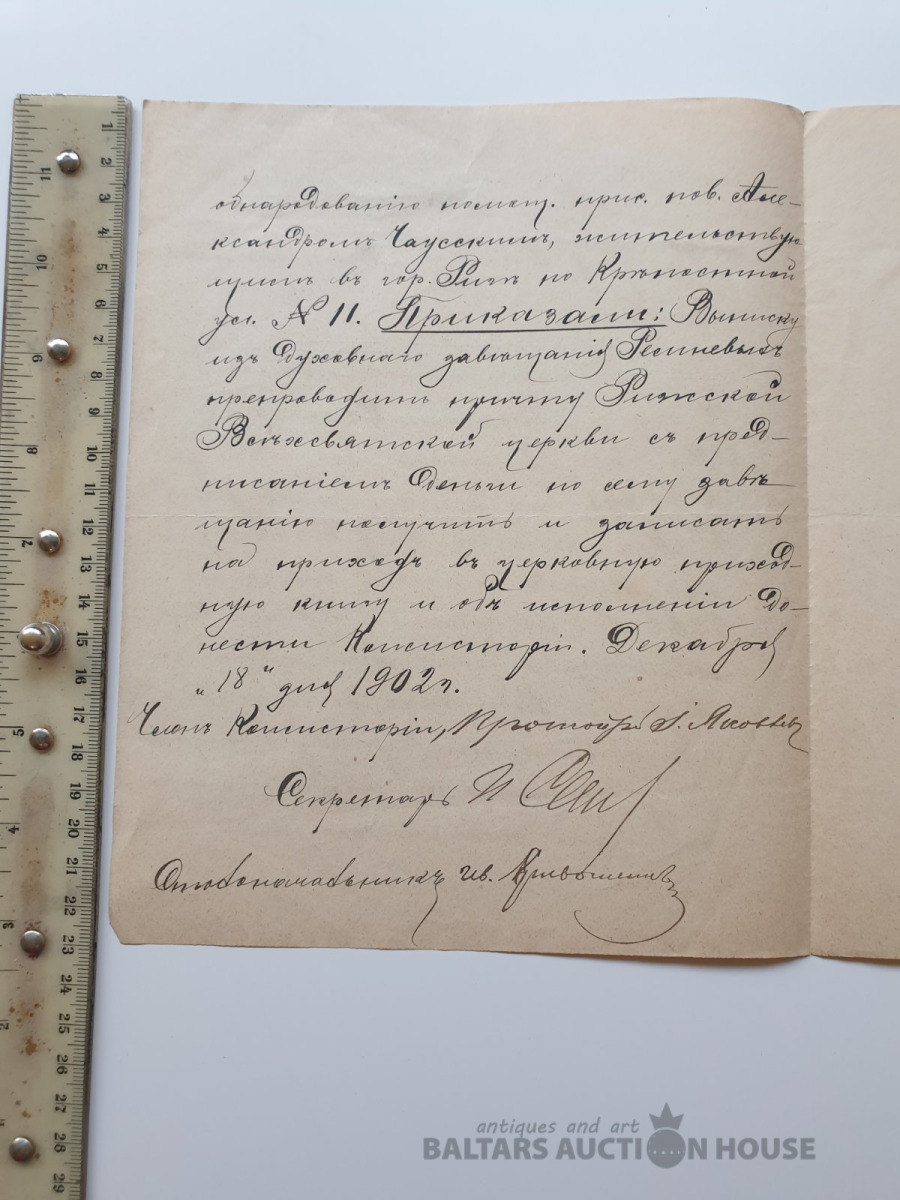 обнародованію помощ. прис. пов. Але-
ксандромъ Чаусскимъ, жительствую
щимъ въ гор. Ригѣ по Крѣпостной
ул. № 11. Приказали: Выписку
изъ духовнаго завѣщанія
препроводить причту Рижской
Всѣхсвятской церкви съ пред-
писаніемъ деньги по сему завѣ
щанію получить и записать
на приходъ въ церковную приход-
ную книгу и объ исполненіи до-
нести Консисторіи. Декабря
„18" дня 1902 г.
Членъ Консисторіи, Протоіер
Секретарь П
Столоначальникъ
antiques and art
BALTARS AUCTION HOUSE
1 2 3 4 5 6 7 8 9 10 11 12 13 14 15 16 17 18 19 20 21 22 23 24 25 26 27 28 29
11 10 9 8 7 5 4 3 2